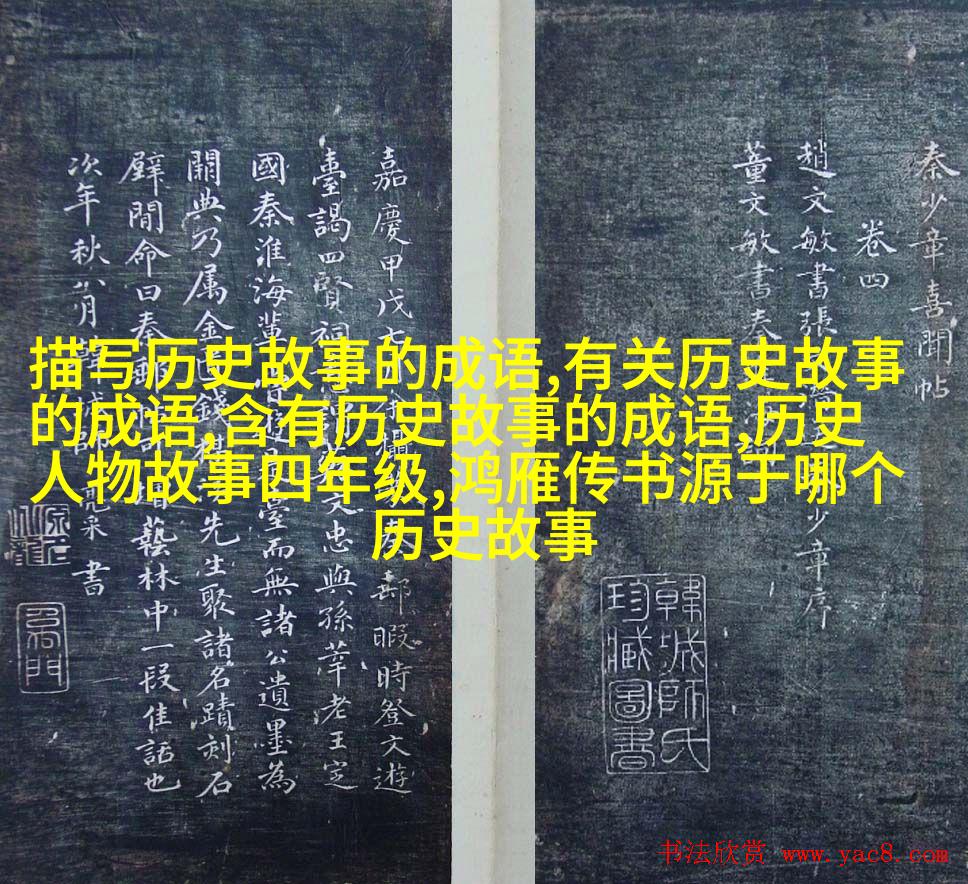 描写历史故事的成语,有关历史故事
的成语,含有历史故事的成语,历史
人物故事四年级,鸿雁传书源于哪个
历史故事
秦少章喜聞帖
卷四
趙文敏書張
董文敏書秦 少章序
韓城師氏
珍臧圖書
嘉慶甲戌七 郵暇時登文遊
臺謁四賢祠 文忠與孫莘老王定
國秦淮海輩 臺而無諸公遺墨為
闕典乃属金匱錢 先生聚諸名蹟刻石
壁間命曰秦郵帖 藝林中一段佳話也
次年秋八月韓城師亮采書
书法欣赏 www.yac8.com